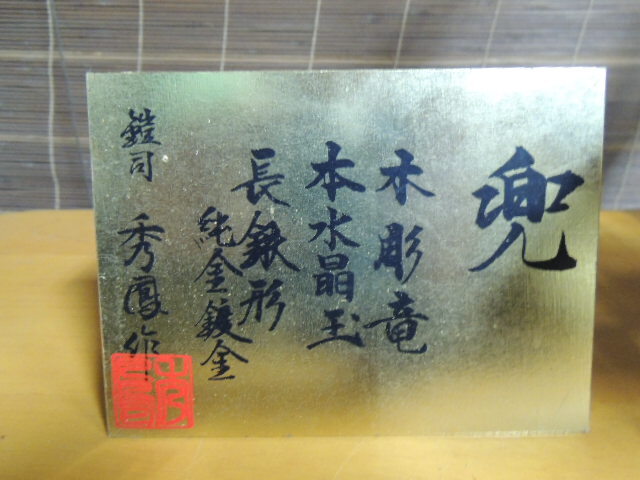 兜
木彫竜
本水晶玉
長鍬形
純金鍍金
鎧司 秀鳳作